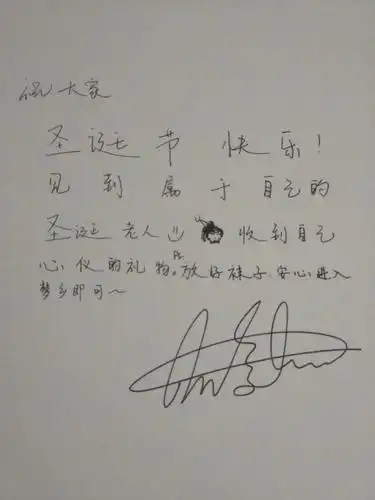 祝大家
圣诞节快乐!
见到属于自己的
圣诞老人 收到自己
心仪的礼物。Ps.放好袜子.安心进入
梦乡即可~